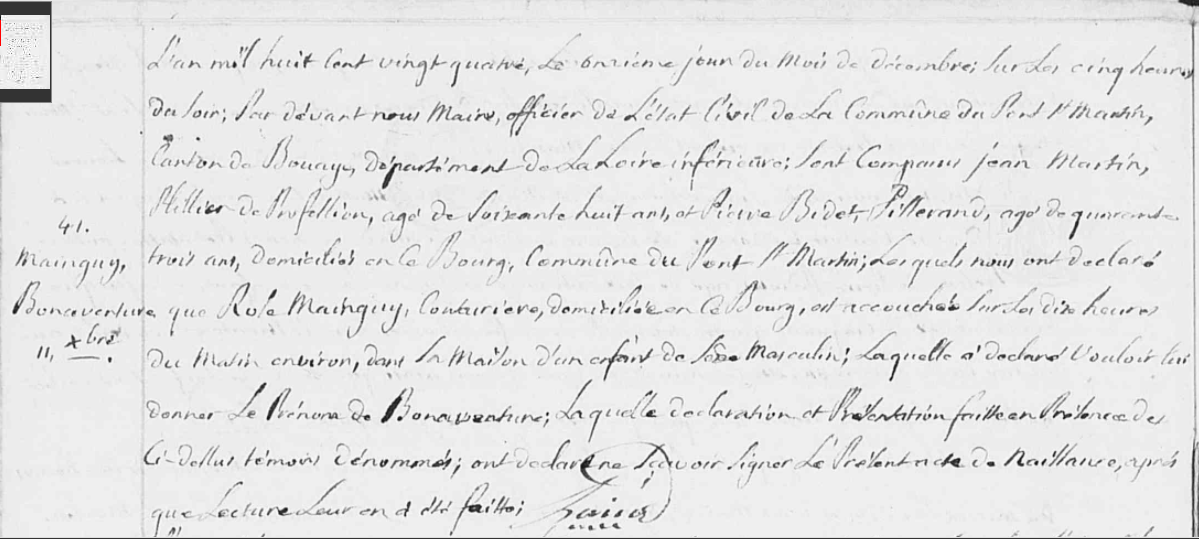 L'an mil huit Cent vingt quatre, Le onzième jour du Mois de décembre; sur Les cinq heures
du soir; Par dévant nous Maire, officiér de L'état Civil de La Commûne du Pont St Martin,
Canton de Bouaye, département de La Loire inférieure; sont Comparus jean Martin,
de Profession, agé de soixante huit ans, et Pierre Bidet, agé de quarante
41.
trois ans, domiciliés en Ce Bourg, Commûne du Pont St Martin; Lesquels nous ont declaré
Mainguy,
Bonaventure
que Rose Mainguy, Couturiere, domiciliée en Ce Bourg, est accouchée sur Les dix heures
11, Xbre.
du Matin environ, dans sa Maison d'un enfant de sexe Masculin; Laquelle a declaré Vouloir lui
donner Le Prénom de Bonaventure; Laquelle declaration et Présentation faitte en Présence des
Ci-dessus témoins dénommés; ont declaré ne Sçavoir signer Le Présent acte de Naissance, aprés
que Lecture Leur en a été faitte;